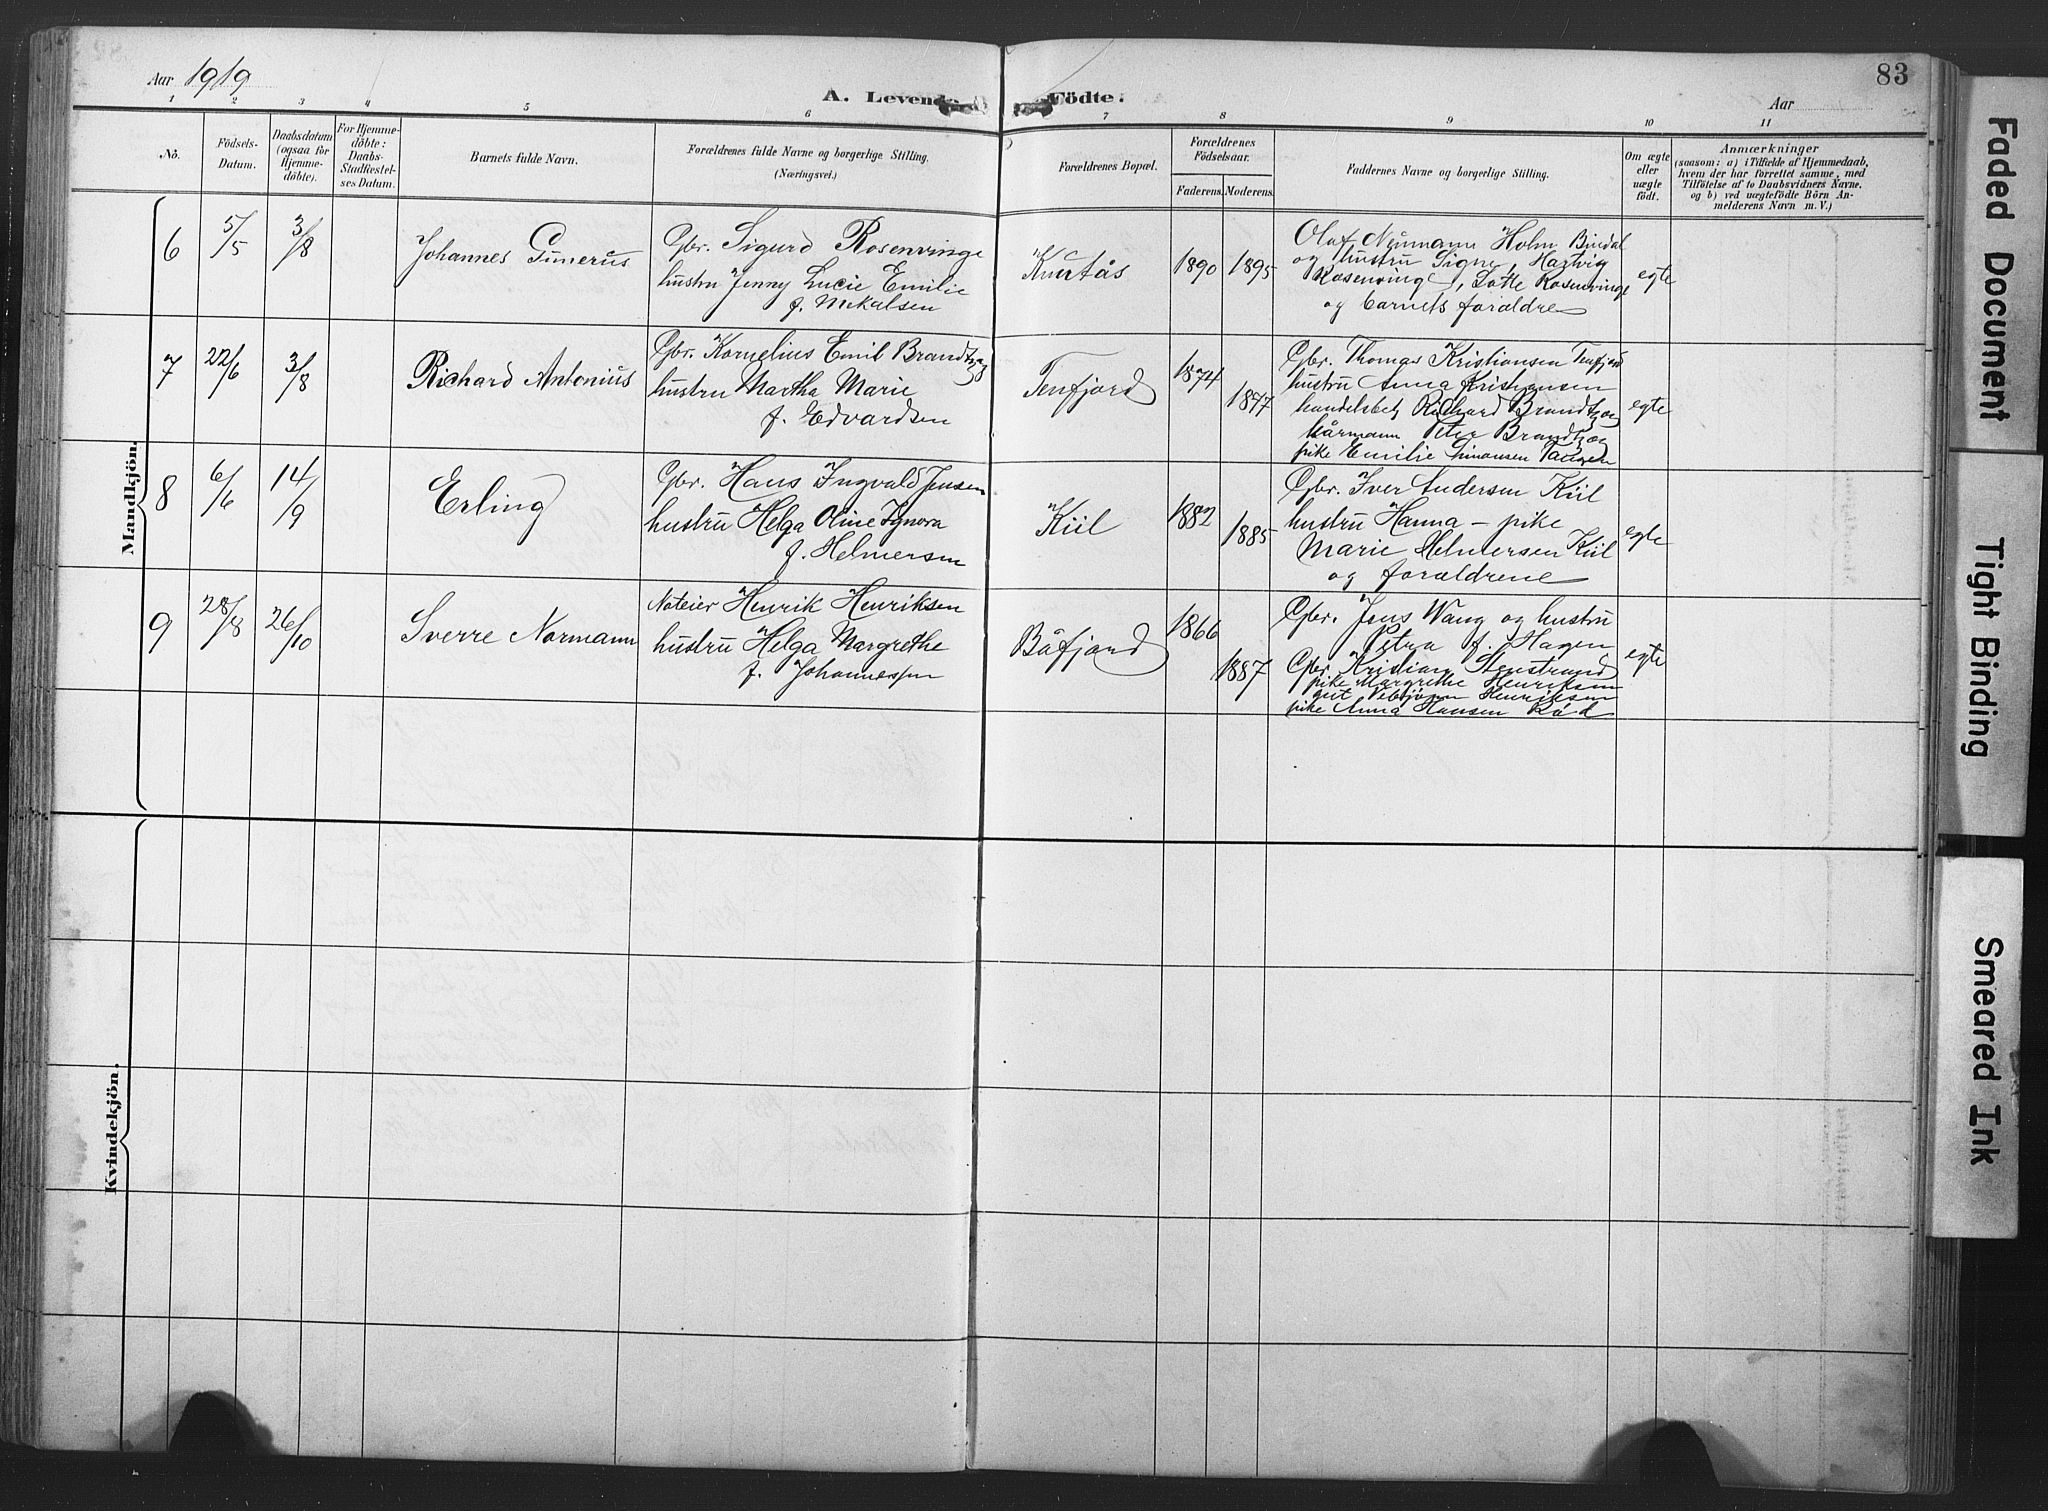 83
Aar 1919
A. Levende Födte.
Aar
1 2 3 4 5 6 7 8 9 10 11
No.
Födsels-Datum.
Daabsdatum (ogsaa for Hjemme-döbte).
For Hjemme-döbte: Daabs-Stadfæstel-ses Datum.
Barnets fulde Navn.
Forældrenes fulde Navne og borgerlige Stilling.
(Næringsvei.)
Forældrenes Bopæl.
Forældrenes Födselsaar.
Faderens. Moderens.
Faddernes Navne og borgerlige Stilling.
Om ægte eller uægte födt.
Anmærkninger
(saasom: a) i Tilfælde af Hjemmedaab,
hvem der har forrettet samme, med
Tilföielse af to Daabsvidners Navne.
og b) ved uægtefödte Börn An-
melderens Navn m. V.)
Mandkjön.
6 5/5 3/8 Johannes Gunerus
Gbr. Sigurd Rosenvinge
hustru Jenny Lucie Emilie
f. Mikalsen
1890 1895
Olaf Neumann Holm Bindal
og hustru Signe, Hartvig
Rosenvinge, Lotte Rosenvinge
og barnets forældre
egte
7 22/6 3/8 Richard Antonius
Gbr. Kornelius Emil Brandtzæg
hustru Martha Marie
f. Edvardsen
Terfjord
1874 1877
Gbr. Thomas Kristiansen Terfjord
hustru Anna Kristiansen
handelsbetj Richard Brandtzæg
Peter Brandtzæg
pike Emilie Simonsen
egte
8 6/6 14/9 Erling
Gbr. Hans Ingvald Jensen
hustru Helga Oline Ignora
f. Helmersen
Kiil
1882 1885
Gbr. Iver Andersen Kiil
hustru Hanna – pike
Marie Helmersen Kiil
og forældrene
egte
9 28/8 26/10 Sverre Normann
Noteier Henrik Henriksen
hustru Helga Margrethe
f. Johannessen
Båfjord
1866 1887
Gbr. Jens Wang og hustru
Petra f. Hagen
Gbr. Kristian Stenstrand
pike Margrethe Henriksen
gut Henriksen
pike Anna Hansen Rød
egte
Kvindekjön.
Faded Document
Tight Binding
Smeared Ink